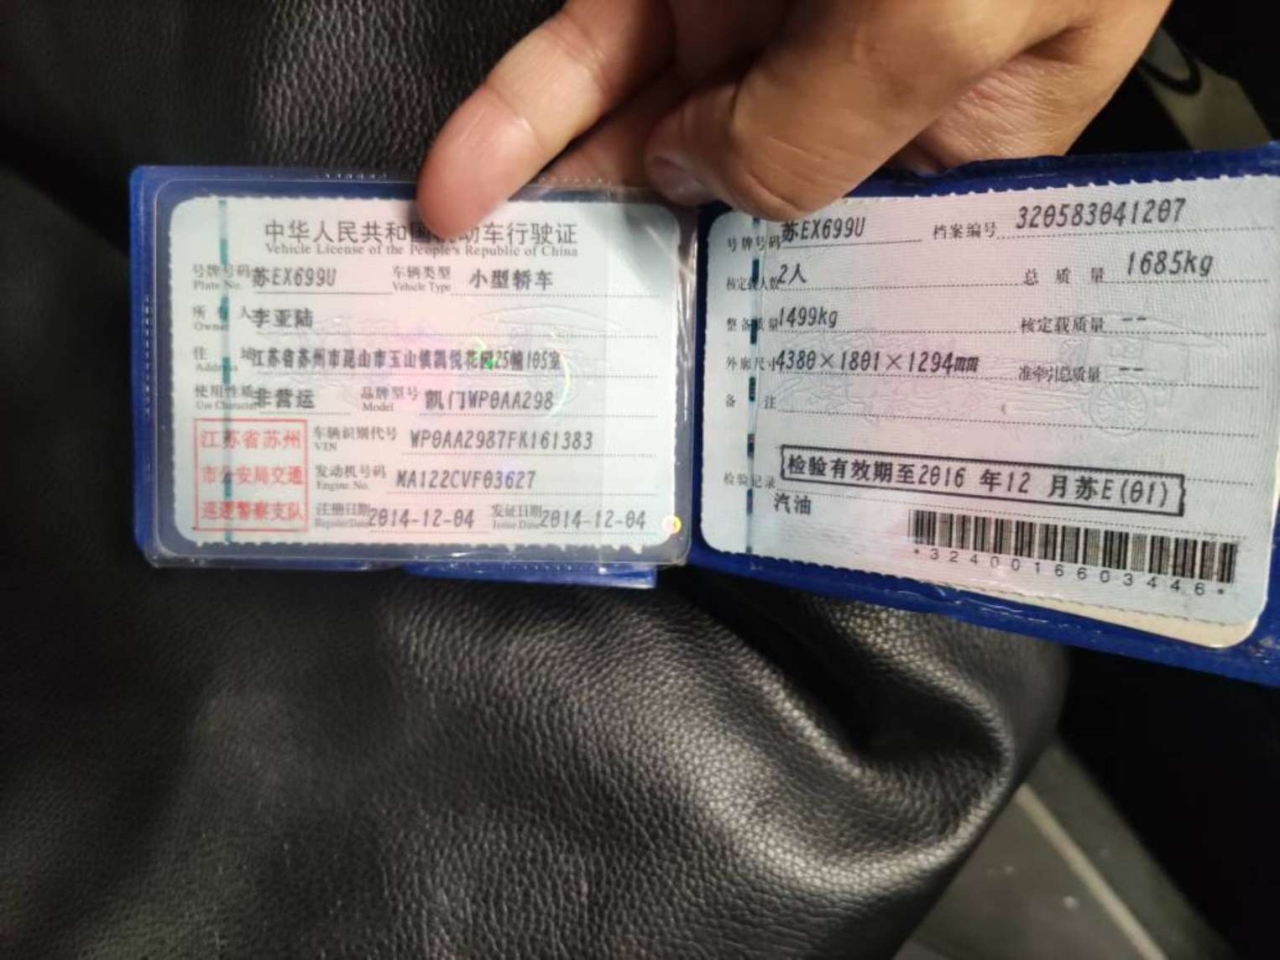 中华人民共和国机动车行驶证
Vehicle License of the People's Republic of China
号牌号码 苏EX699U 车辆类型 小型轿车
Plate No. Vehicle Type
所有人 李亚陆
Owner
住址 江苏省苏州市昆山市玉山镇凯悦花园25幢105室
Address
使用性质 非营运 品牌型号 凯门WP0AA298
Use Character Model
江苏省苏州
市公安局交通
巡逻警察支队
车辆识别代号 WP0AA2987FK161383
VIN
发动机号码 MA122CVF03627
Engine No.
注册日期 2014-12-04 发证日期 2014-12-04
Register Date Issue Date
号牌号码 苏EX699U 档案编号 320583041207
核定载人数 2人 总质量 1685kg
整备质量 1499kg 核定载质量 --
外廓尺寸 4380×1801×1294mm 准牵引总质量 --
备注
检验记录 检验有效期至2016年12月苏E(01)
汽油
*3240016603446*